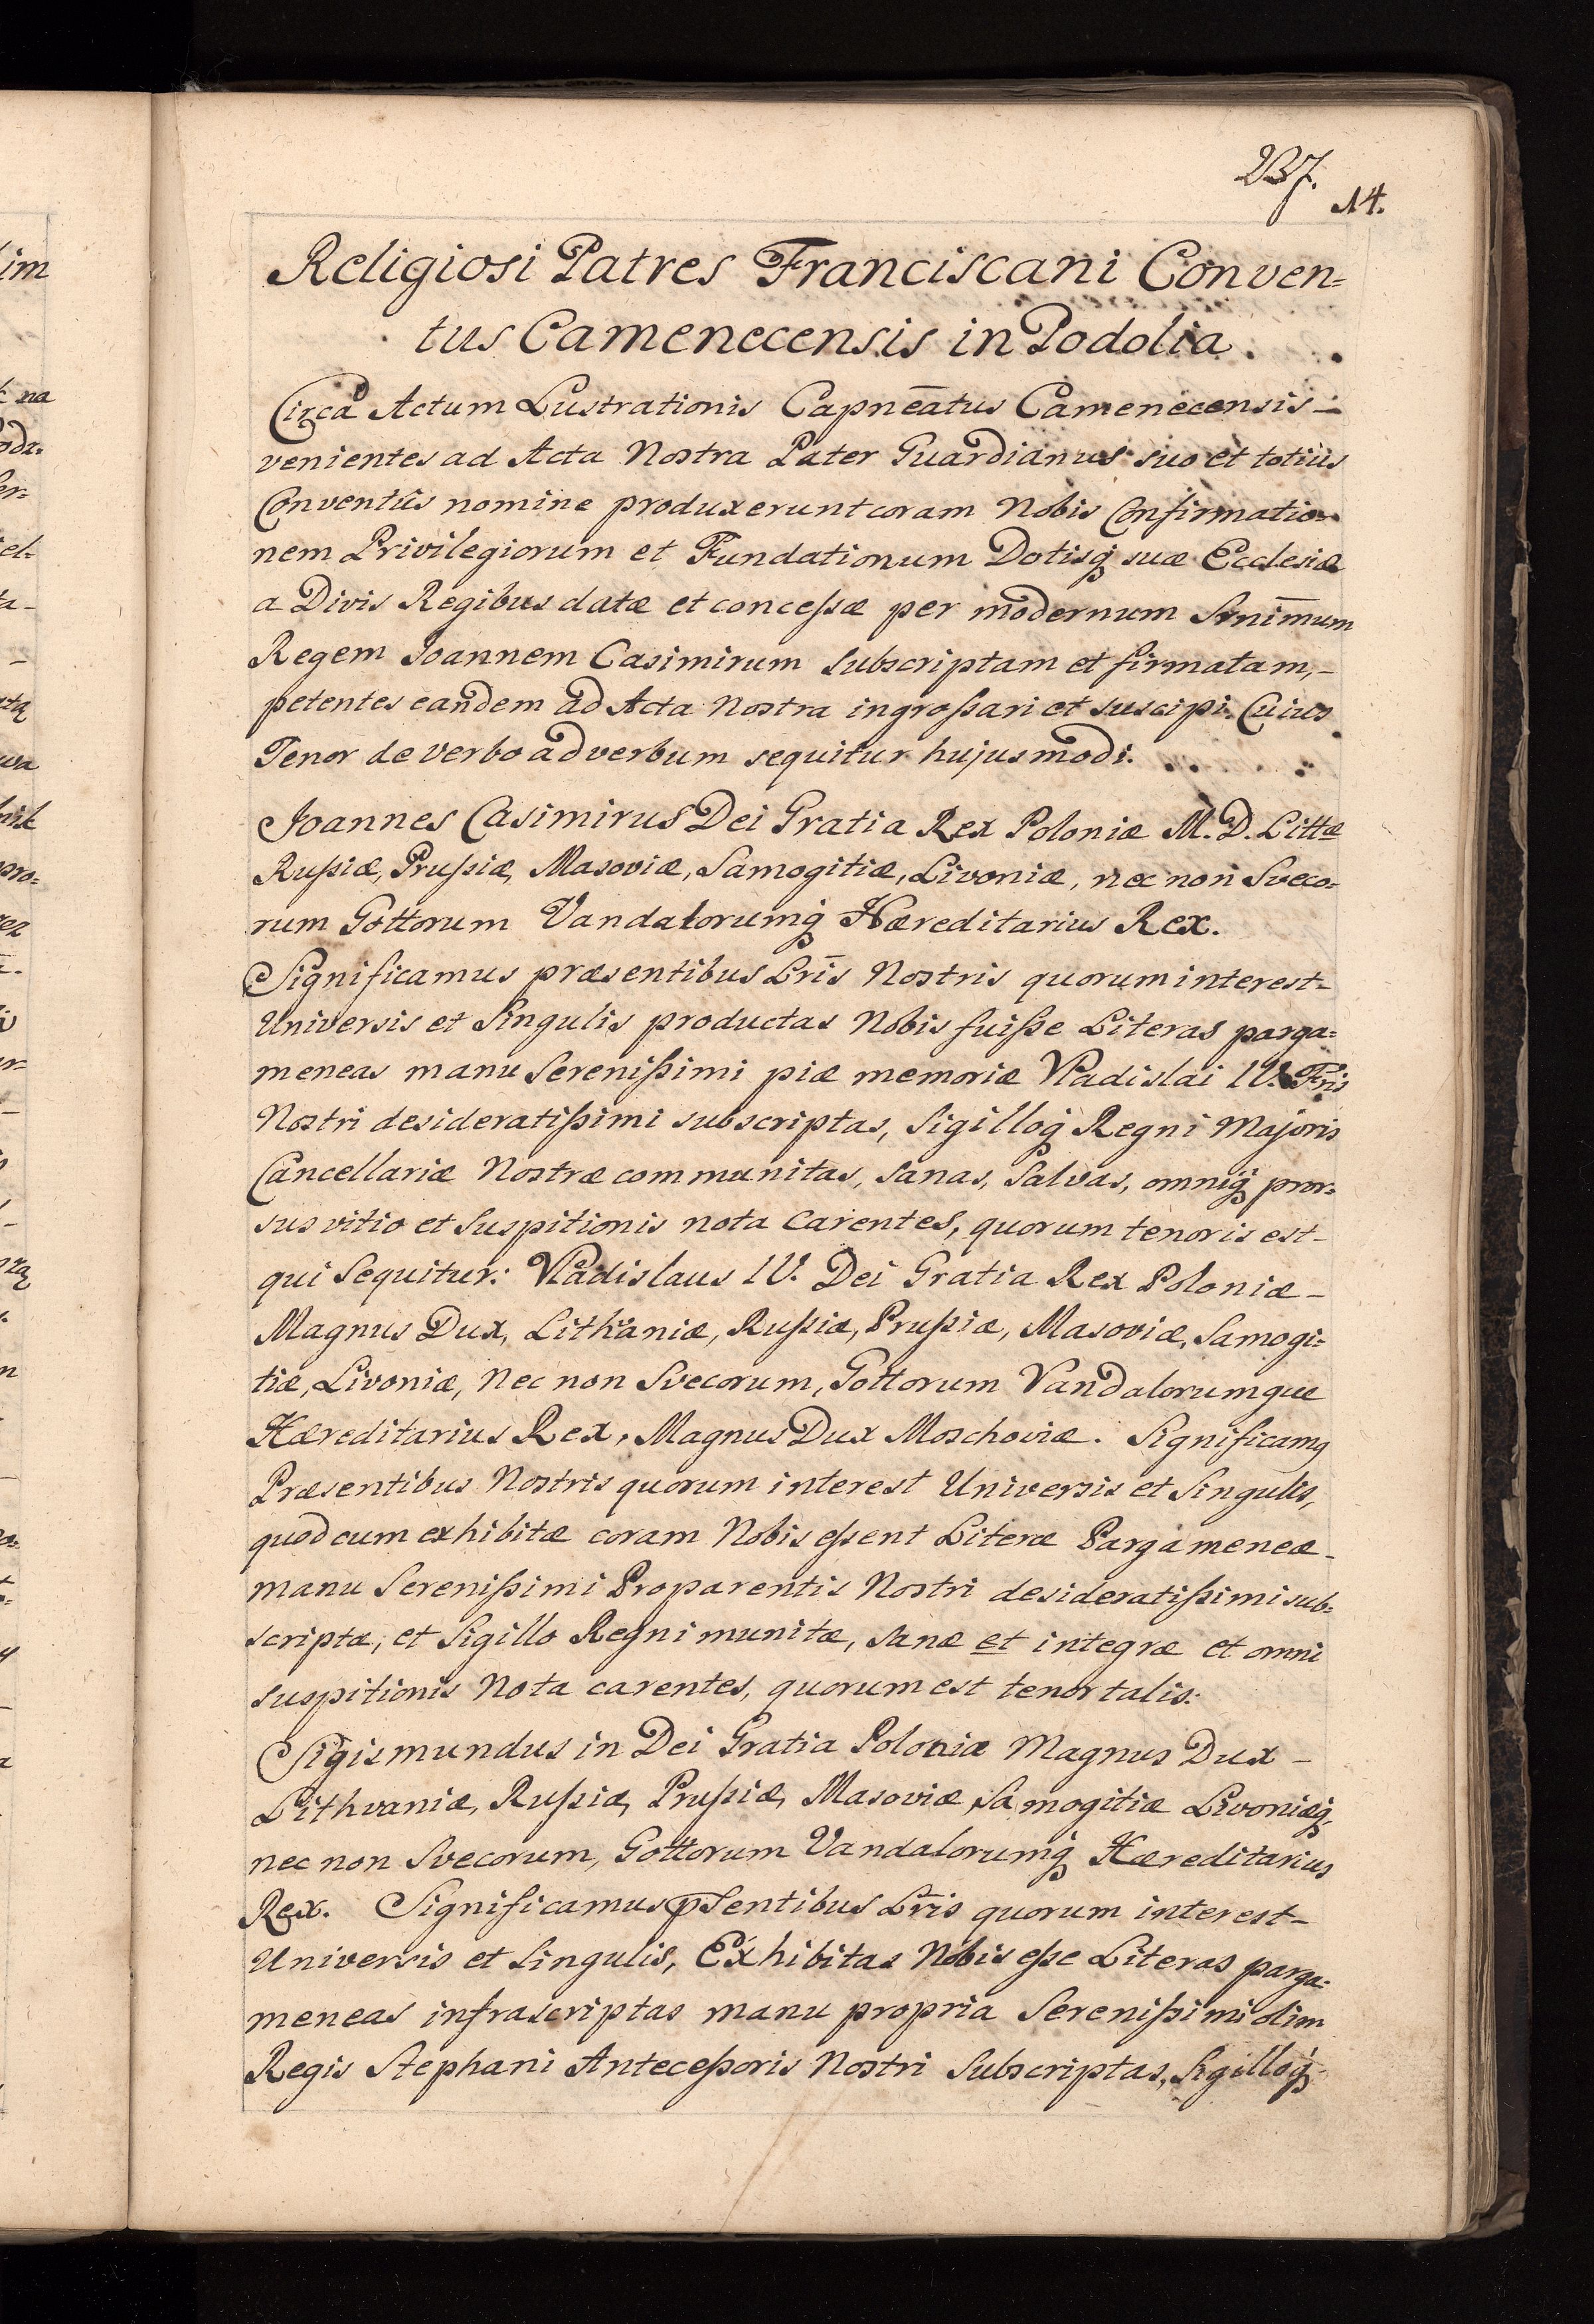 237.
14.
Religiosi Patres Franciscani Conven=
tus Camenecensis in Podolia.
Circa Actum Lustrationis Capnēatus Camenecensis –
venientes ad Acta Nostra Pater Guardianus suo et totius
Conventûs nomine produxerunt coram Nobis Confirmatio=
nem Privilegiorum et Fundationum Dotisq; suæ Ecclesiæ
a Divis Regibus datæ et conceßæ per modernum Srnīmum
Regem Joannem Casimirum subscriptam et firmatam, –
petentes eandem ad Acta Nostra ingroßari et suscipi. Cuius
Tenor de verbo ad verbum sequitur hujusmodi.
Joannes Casimirus Dei Gratia Rex Poloniæ M. D. Littæ
Rußiæ, Prußiæ, Masoviæ, Samogitiæ, Livoniæ, nec non Sveco=
rum Gottorum Vandalorumq; Hæreditarius Rex.
Significamus præsentibus Lrīs Nostris quorum interest –
Universis et Singulis productas Nobis fuiße Literas parga=
meneas manu Serenißimi piæ memoriæ Vladislai IV. Frīs
Nostri desideratißimi subscriptas, Sigilloq; Regni Majoris
Cancellariæ Nostræ communitas, sanas, salvas, omniq; pror=
sus vitio et suspitionis nota carentes, quorum tenoris est –
qui sequitur: Vladislaus IV. Dei Gratia Rex Poloniæ –
Magnus Dux, Lithaniæ, Rußiæ, Prußiæ, Masoviæ, Samogi=
tiæ, Livoniæ, Nec non Svecorum, Gottorum Vandalorumque
Hæreditarius Rex, Magnus Dux Moschoviæ. Significamq
Præsentibus Nostris quorum interest Universis et Singulis,
quod cum exhibitæ coram Nobis eßent Literæ Pargameneæ –
manu Serenißimi Proparentis Nostri desideratißimi sub=
scriptæ, et Sigillo Regni munitæ, sanæ et integræ et omni
suspitionis Nota carentes, quorum est tenor talis:
Sigismundus in Dei Gratia Poloniæ Magnus Dux –
Lithvaniæ, Rußiæ, Prußiæ, Masoviæ, Samogitiæ Livoniæq;
nec non Svecorum, Gottorum Vandalorumq; Hæreditarius
Rex. Significamus psentibus Lrīs quorum interest –
Universis et Singulis, Exhibitas Nobis eße Literas parga=
meneas infrascriptas manu propria Serenißimi olim
Regis Stephani Anteceßoris Nostri Subscriptas, Sigilloq;